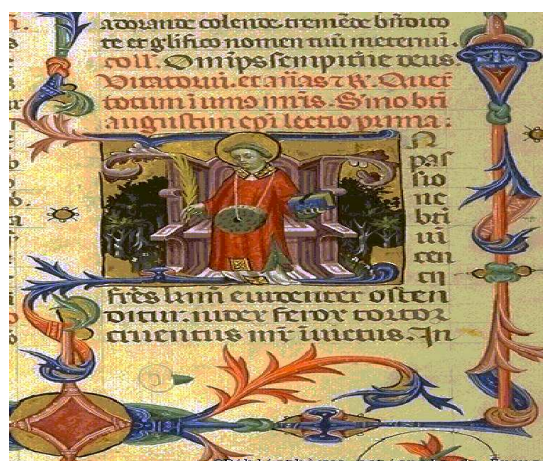 adorande colende tremēde bn̄dico
te et gl̄ifico nomen tuū in eternū.
coll. Omīps sempit̄ne deus
Vitatoriū. et añas ⁊ R. Quer̄
totum ī uno mr̄is. S'mo bt̄i
augustini ep̄i lectio prima:
pas
sio
ne
bt̄i
ui
cen
cij
fr̄es euidenter osten
ditur. iudex ferox tortor
cruentus mr̄ inuictus. In